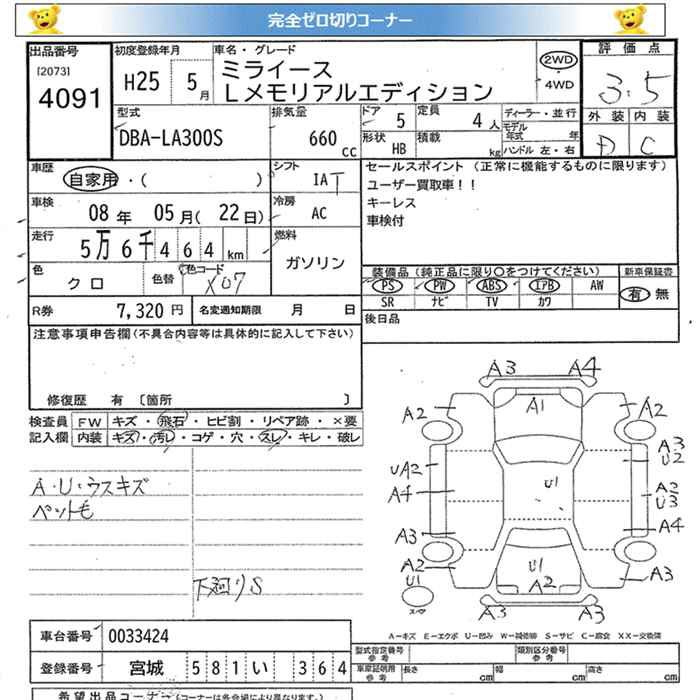 完全ゼロ切りコーナー
出品番号 初度登録年月 車名・グレード 評価点
[2073] ミライース 2WD
4091 H25 5月 Lメモリアルエディション 4WD 3.5
型式 排気量 ドア 5 定員 4人 ディーラー・並行 外装 内装
モデル年式 年
DBA-LA300S 660cc 形状 HB 積載 kg ハンドル 左・右 D C
車歴 シフト セールスポイント (正常に機能するものに限ります)
自家用・( ) IAT ユーザー買取車!!
車検 冷房 キーレス
08年 05月(22日) AC 車検付
走行 5万6千464km 燃料
ガソリン
色 色替 色コード 装備品(純正品に限り〇をつけてください) 新車保証書
クロ X07 PS PW ABS IAB AW 有 無
SR ナビ TV カワ
R券 7,320円 名変通知期限 月 日 後日品
注意事項申告欄(不具合内容等は具体的に記入して下さい)
修復歴 有 〔箇所 〕
検査員 FW キズ・飛石・ヒビ割・リペア跡・×要
記入欄 内装 キズ・汚レ・コゲ・穴・スレ・キレ・破レ
A3 A4
A2 A1 A2
A3
UA2 U2
A4 U1 A2
U3
A3 A4
A2 U1 A3
U1 A2
スペア A3 A3
A・U・ウスキズ
ペット毛
下廻りS
A-キズ E-エクボ U-凹み W-補修跡 S-サビ C-腐食 XX-交換済
車台番号 0033424 型式指定番号 参考 類別区分番号 参考
登録番号 宮城 581 い 364 車庫証明用 参考 長さ cm 幅 cm 高さ cm
希望出品コーナー(コーナーは各会場により異なります。)